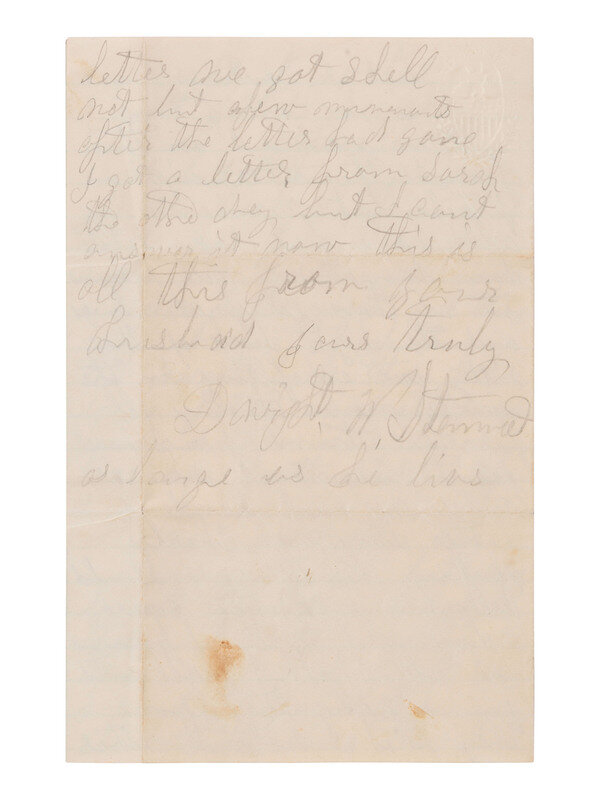 letter we got shell
not but afew mumunats
after the letter had gone
I got a letter from Sarah
the othe day but I cant
answer it now this is
all this from your
husbad yours truly
Dwight W
as longe as he livs